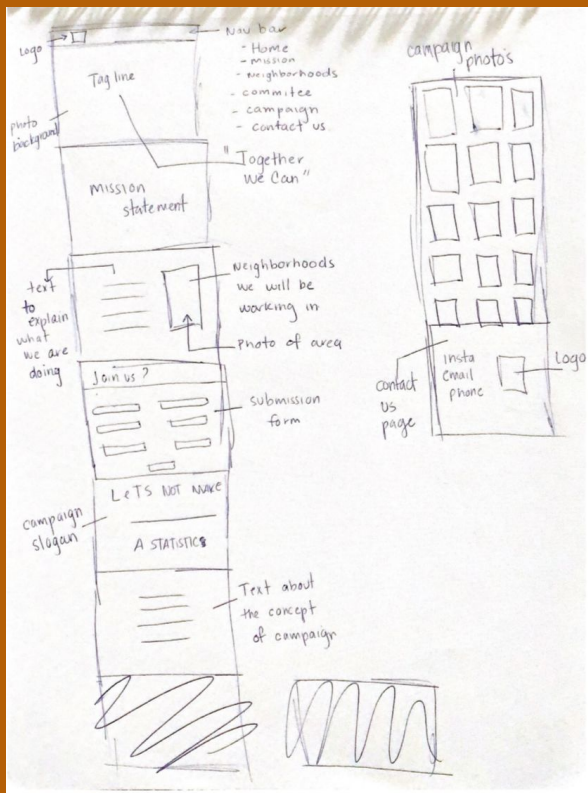 Logo
Nav bar
- Home
- mission
- Neighborhoods
- commitee
- campaign
- contact us
Tag line
photo
background
"Together
we can"
mission
statement
text
to
explain
what
we are
doing
Neighborhoods
we will be
working in
photo of area
Join us?
submission
form
campaign
slogan
LeTS NOT MAKE
A STATISTICS
Text about
the concept
of campaign
campaign
photo's
contact
us
page
insta
email
phone
Logo